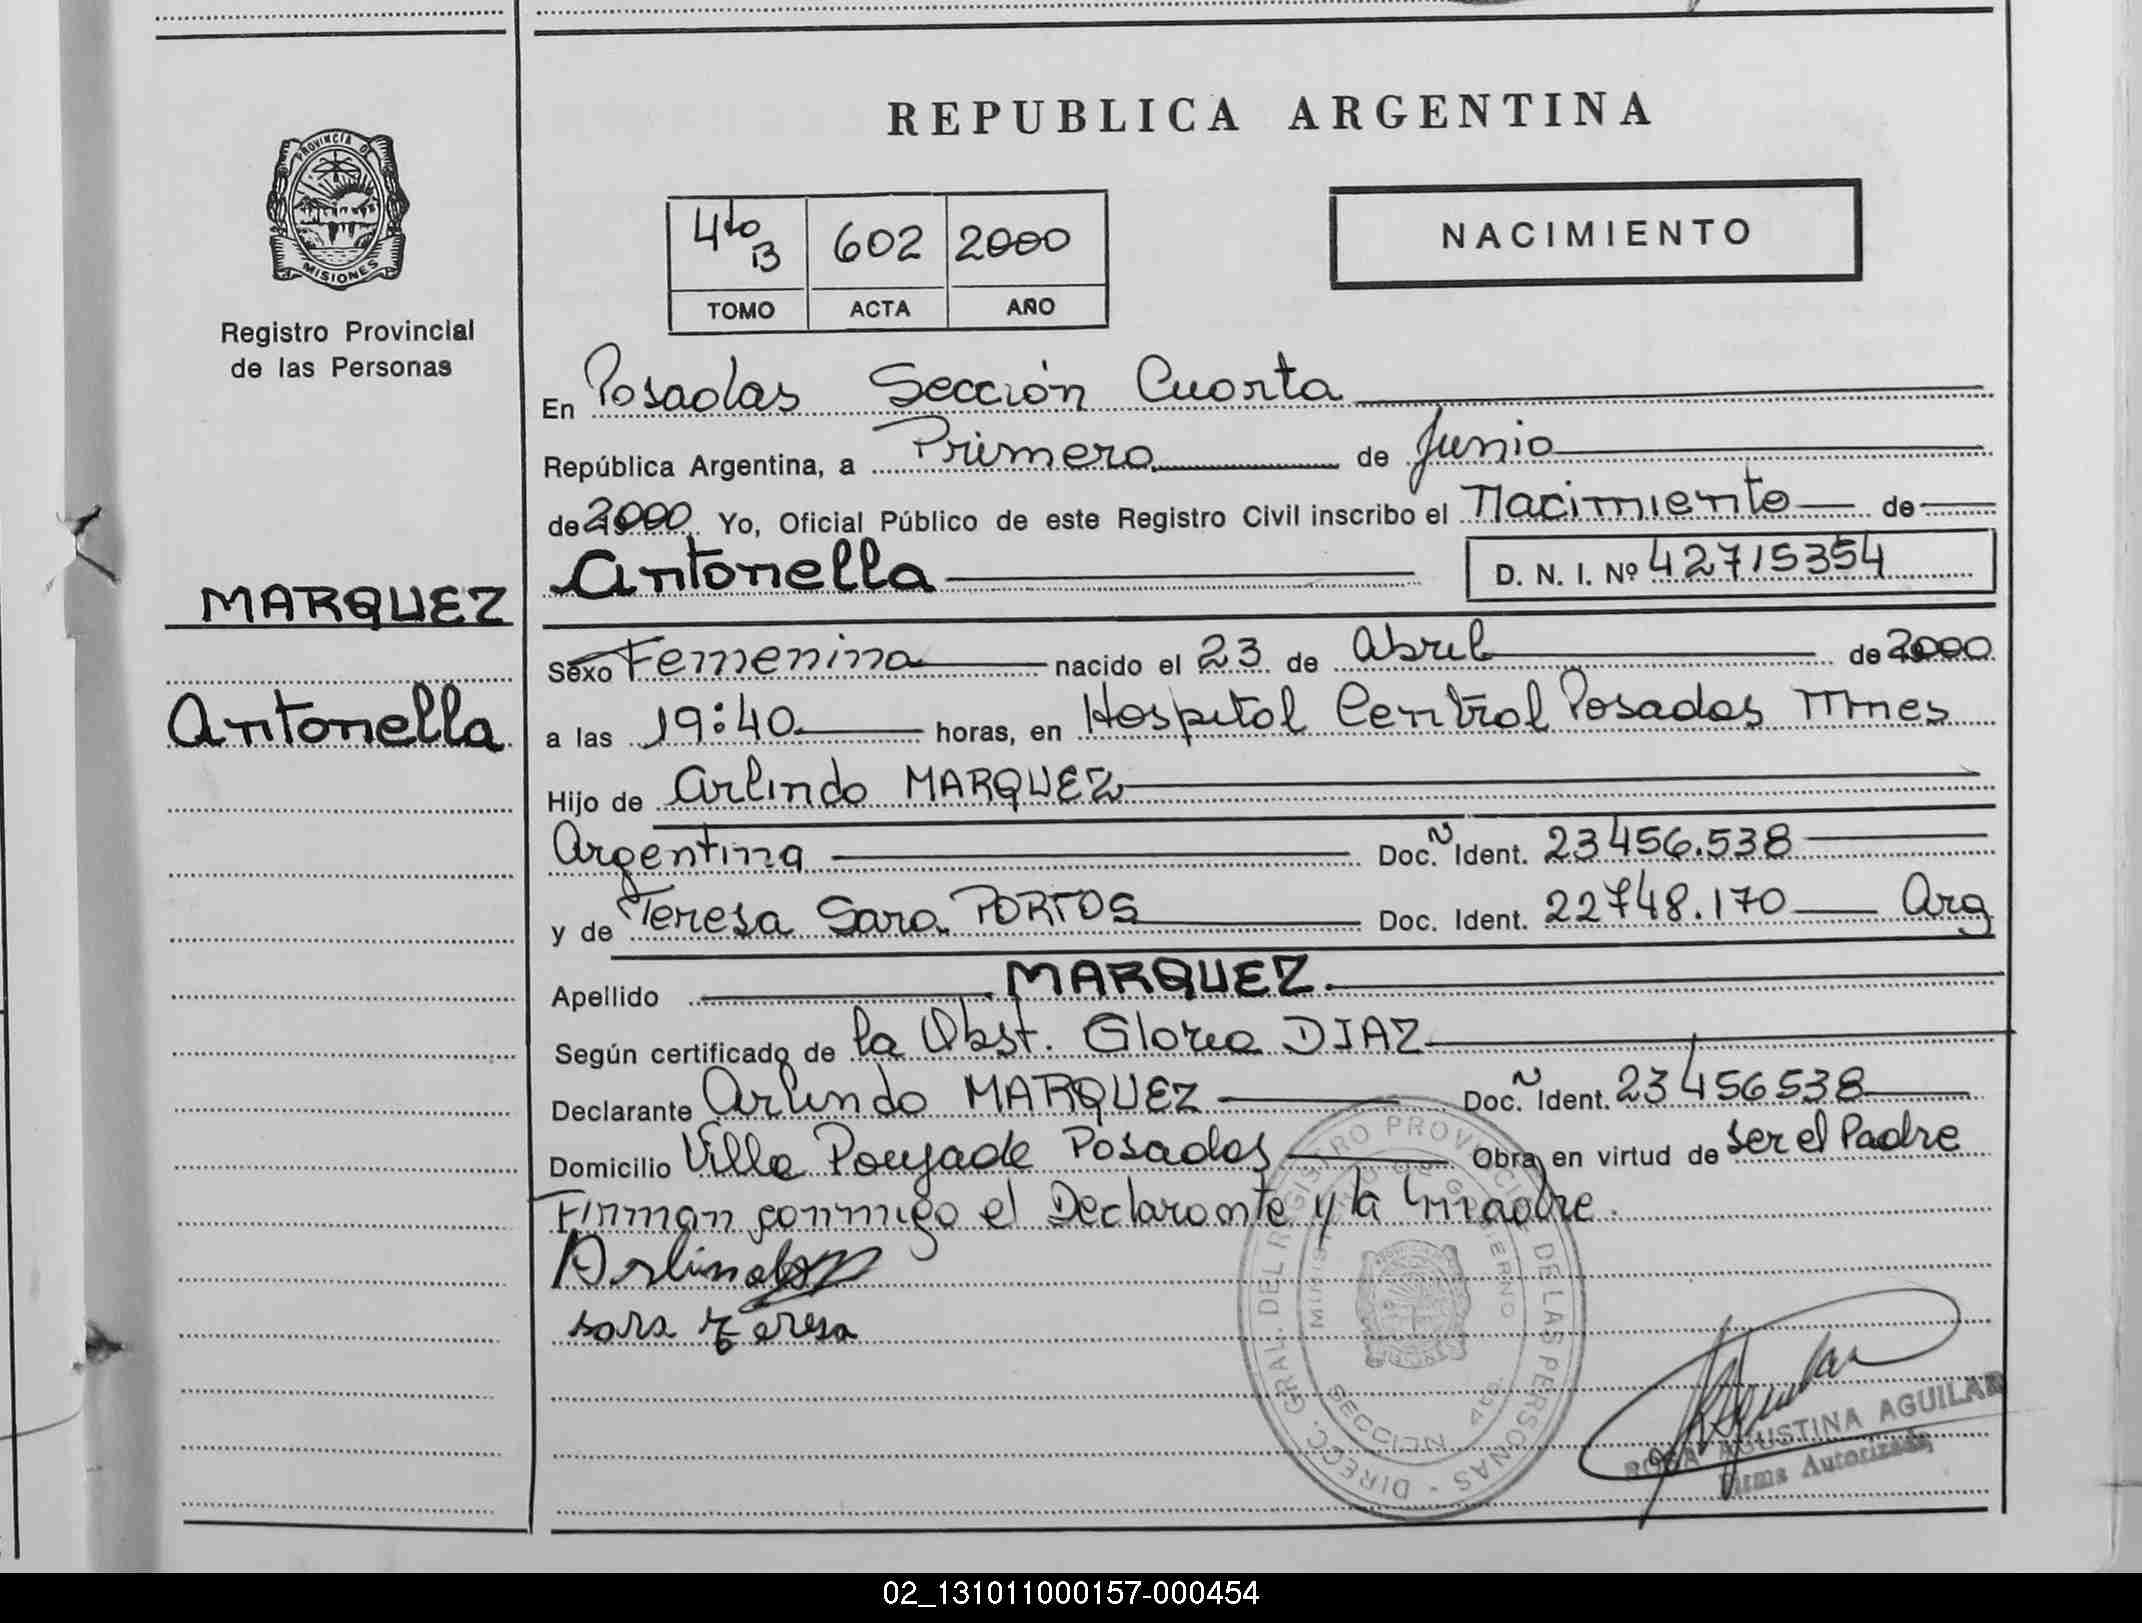 REPUBLICA ARGENTINA
PROVINCIA DE
MISIONES
Registro Provincial
de las Personas
4to B 602 2000
TOMO ACTA AÑO
NACIMIENTO
En Posadas Sección Cuarta
República Argentina, a Primero de Junio
de 2000 Yo, Oficial Público de este Registro Civil inscribo el Nacimiento de
MARQUEZ
Antonella
Antonella D. N. I. Nº 42715354
Sexo Femenina nacido el 23 de Abril de 2000
a las 19:40 horas, en Hospital Central Posadas Mnes
Hijo de Arlindo MARQUEZ
Argentina Doc. Ident. 23456.538
y de Teresa Sara PORTOS Doc. Ident. 22748.170 Arg
Apellido MARQUEZ.
Según certificado de la Obst. Gloria DIAZ
Declarante Arlindo MARQUEZ Doc. Ident. 23456538
Domicilio Villa Poujade Posadas Obra en virtud de ser el Padre
Firman conmigo el Declarante y la madre.
Arlindo
sara teresa
DIRECC. GRAL. DEL REGISTRO PROVINCIAL DE LAS PERSONAS -
MINISTERIO DE GOBIERNO
SECCION 4ta.
ROSA AGUSTINA AGUILAR
Firma Autorizada
02_131011000157-000454